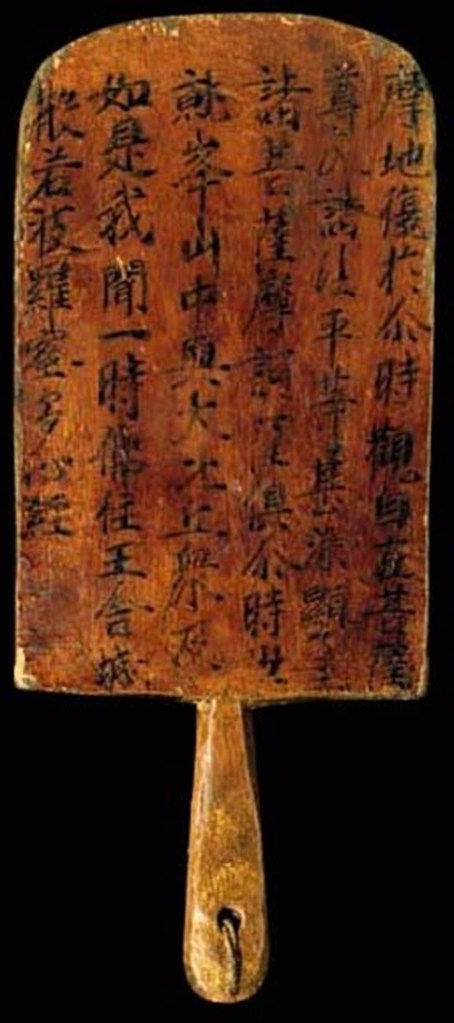 般若波羅蜜多心經
如是我聞一時佛住王舍城
鷲峯山中與大比丘眾及
諸菩薩摩訶薩俱尒時世
尊入諸法平等甚深顯了三
摩地復於尒時觀自在菩薩